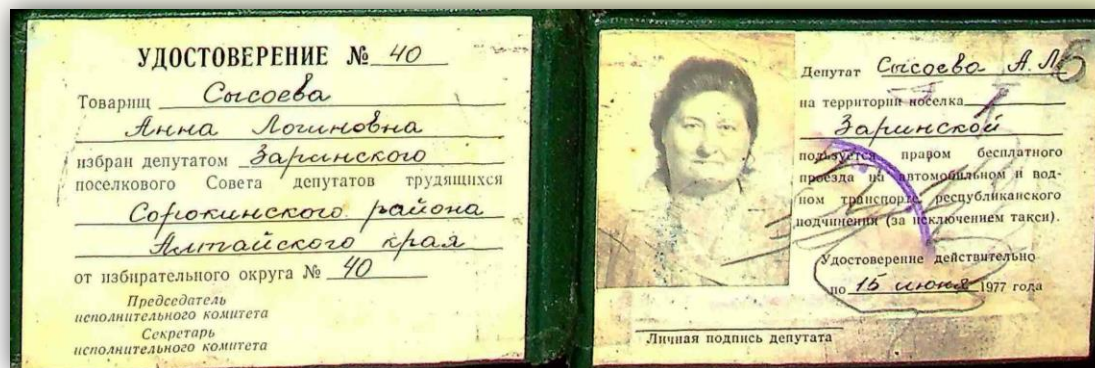 УДОСТОВЕРЕНИЕ № 40
Товарищ Сысоева
Анна Логиновна
избран депутатом Заринского
поселкового Совета депутатов трудящихся
Сорокинского района
Алтайского края
от избирательного округа № 40
Председатель
исполнительного комитета
Секретарь
исполнительного комитета
Депутат Сысоева А. Л. 6
на территории поселка
Заринской
пользуется правом бесплатного
проезда на автомобильном и вод-
ном транспорте республиканского
подчинения (за исключением такси).
Удостоверение действительно
по 15 июня 1977 года
Личная подпись депутата